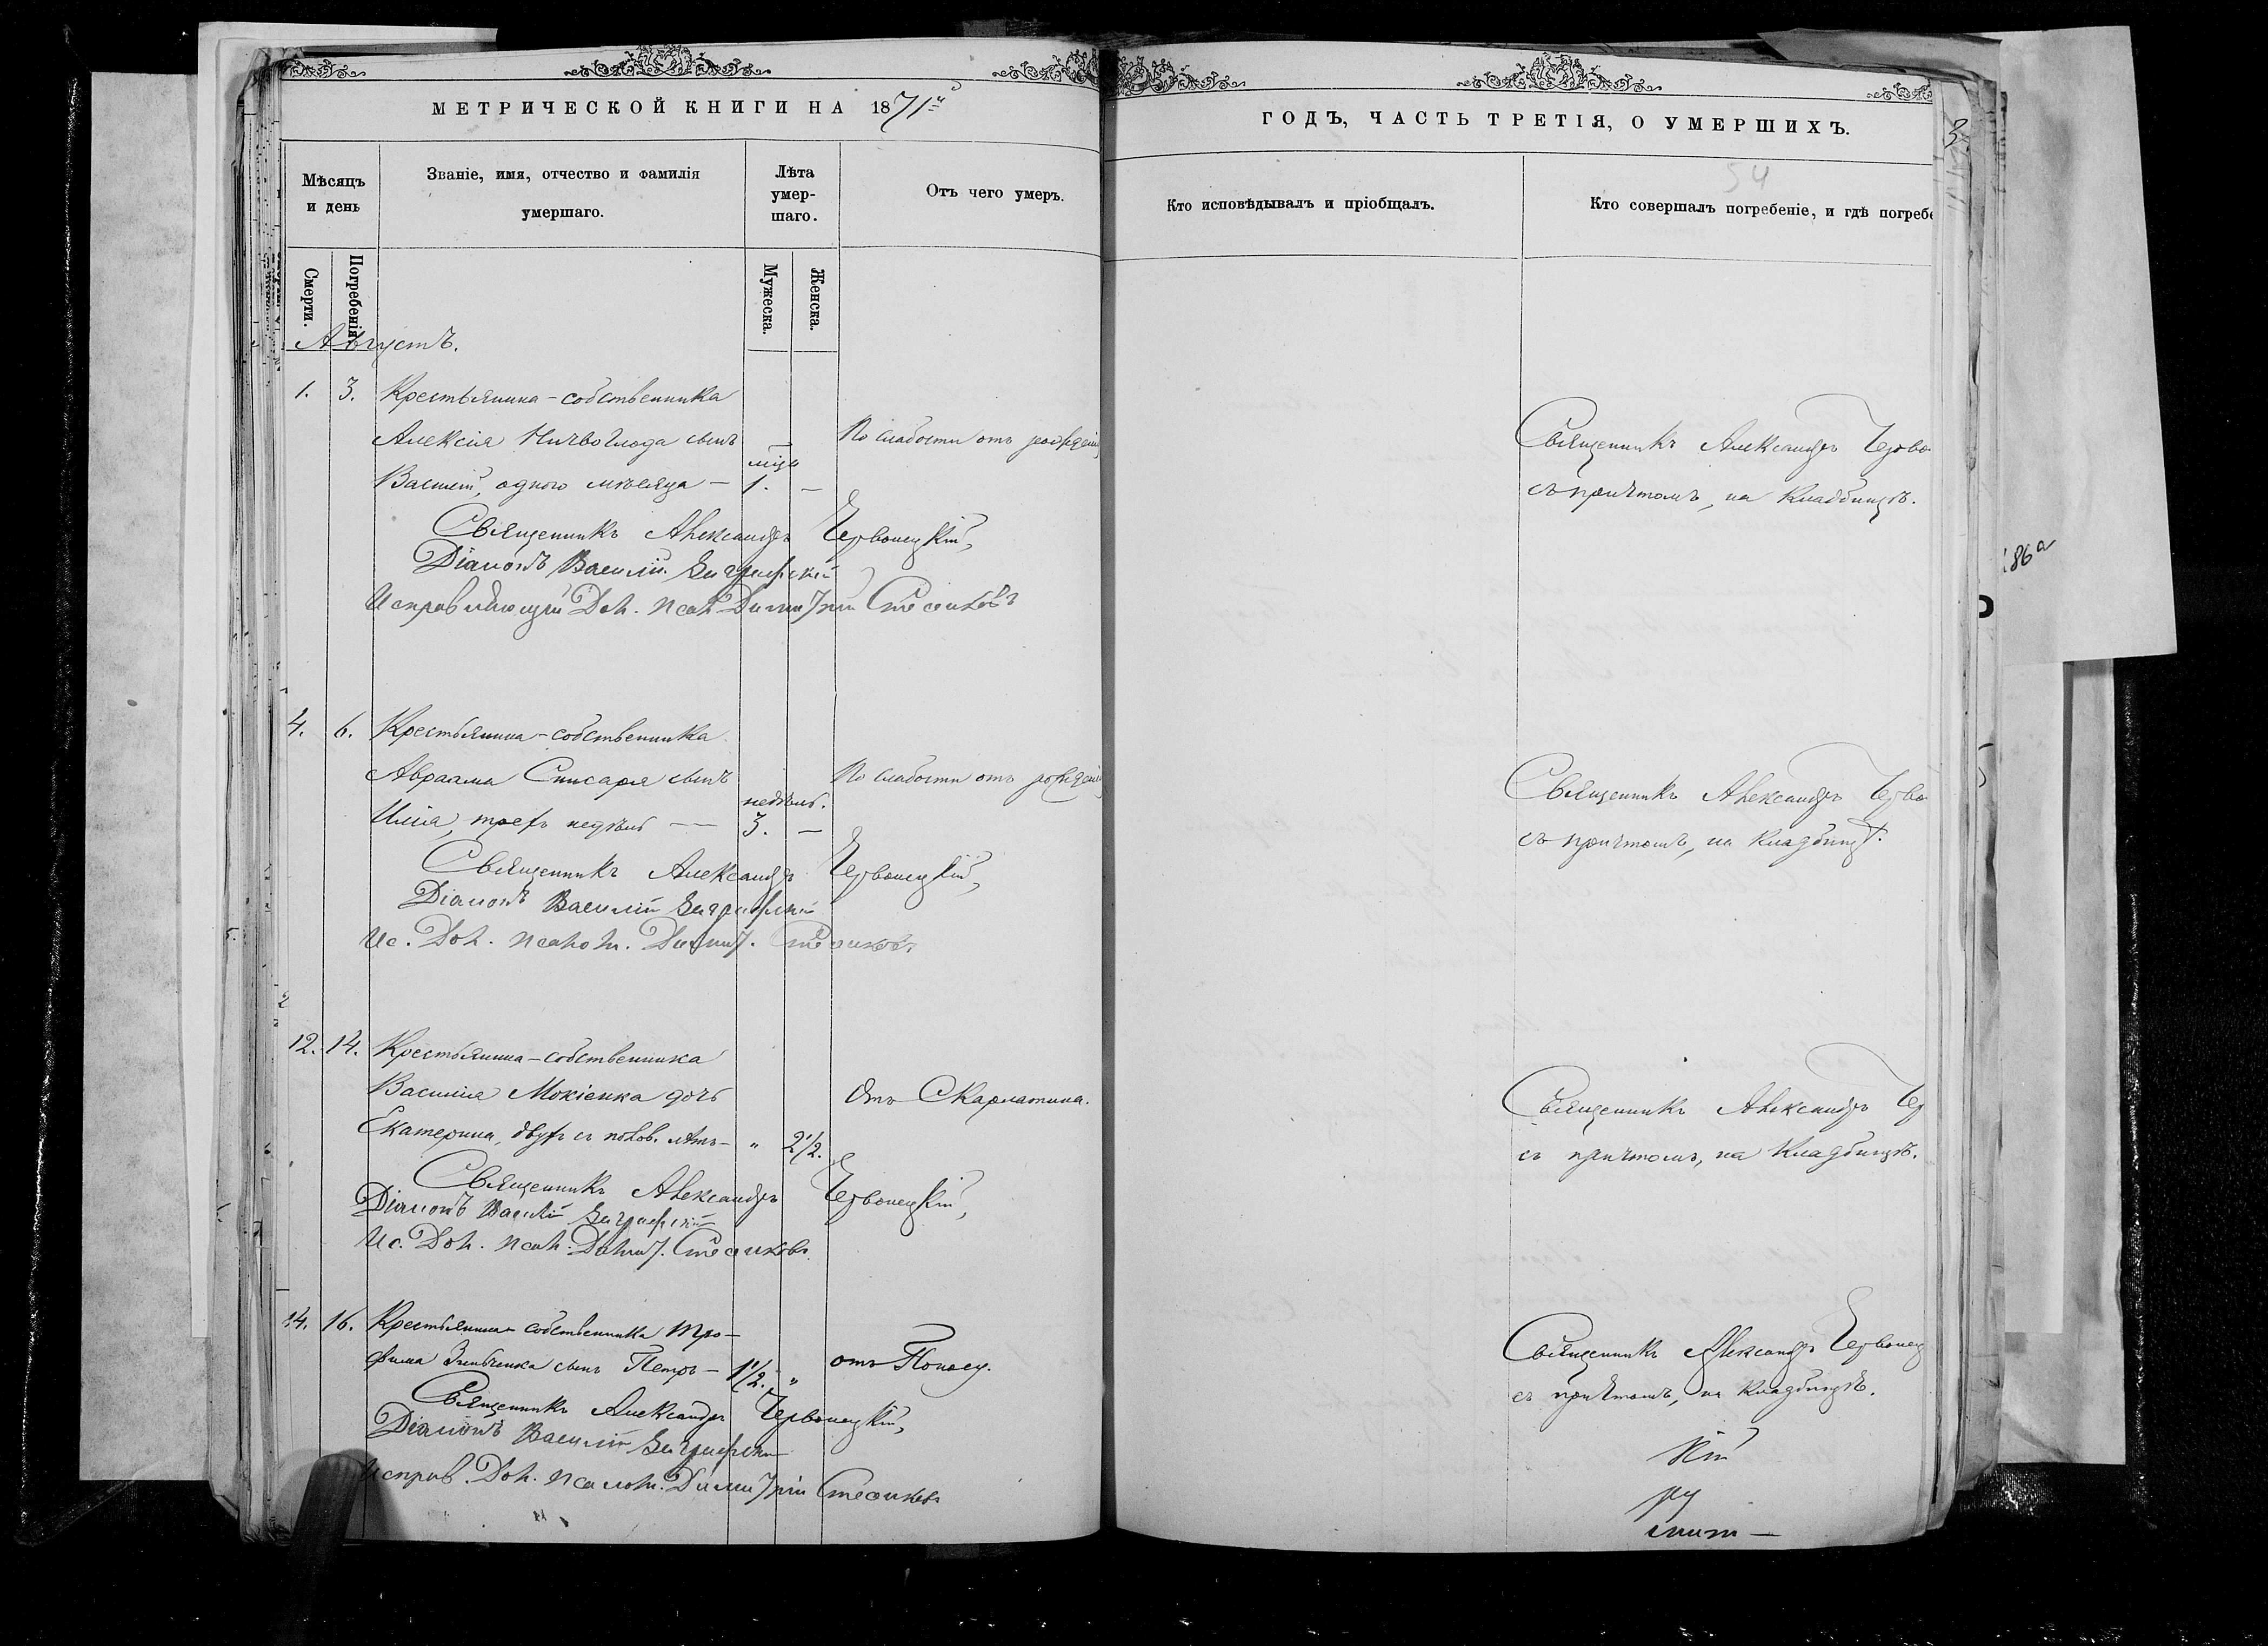 МЕТРИЧЕСКОЙ КНИГИ НА 1871й
Мѣсяцъ и день
Званіе, имя, отчество и фамилія умершаго.
Лѣта умер-
шаго.
Отъ чего умеръ.
Смерти.
Погребенія
Мужеска.
Женска.
Августъ.
1. 3. Крестьянина-собственника
Алексія сынъ По слабости отъ рожденія
Василій, одного мѣсяца — мѣс. 1. —
Священникъ Александръ Червонецкій,
Діаконъ Василій
Исправляющій Дол. Псал. Димитрій
4. 6. Крестьянина-собственника
Авраама Списаря сынъ По слабости отъ рожденія
Илія, трехъ недѣль — недѣль. 3. —
Священникъ Александръ Червонецкій,
Діаконъ Василій
Ис. Дол. Псалом. Димит.
12. 14. Крестьянина-собственника
Василія Мокіенка дочь Отъ Скарлатина.
Екатерина, двухъ съ полов. лѣтъ — „ 2 1/2.
Священникъ Александръ Червонецкій,
Діаконъ Василій
Ис. Дол. Псал. Димит.
14. 16. Крестьянина-собственника Тро-
фима Зинченка сынъ Петръ — 1 1/2. „ отъ Поносу.
Священникъ Александръ Червонецкій,
Діаконъ Василій
Исправ. Дол. Псалом. Димитрій
ГОДЪ, ЧАСТЬ ТРЕТІЯ, О УМЕРШИХЪ.
54
Кто исповѣдывалъ и пріобщалъ.
Кто совершалъ погребеніе, и гдѣ погребе
Священникъ Александръ Черво
съ причтомъ, на Кладбищѣ.
Священникъ Александръ Черво
съ причтомъ, на Кладбищѣ.
Священникъ Александръ Чер
съ причтомъ, на Кладбищѣ.
Священникъ Александръ Червонец
съ причтомъ, на Кладбищѣ.
кій
86а